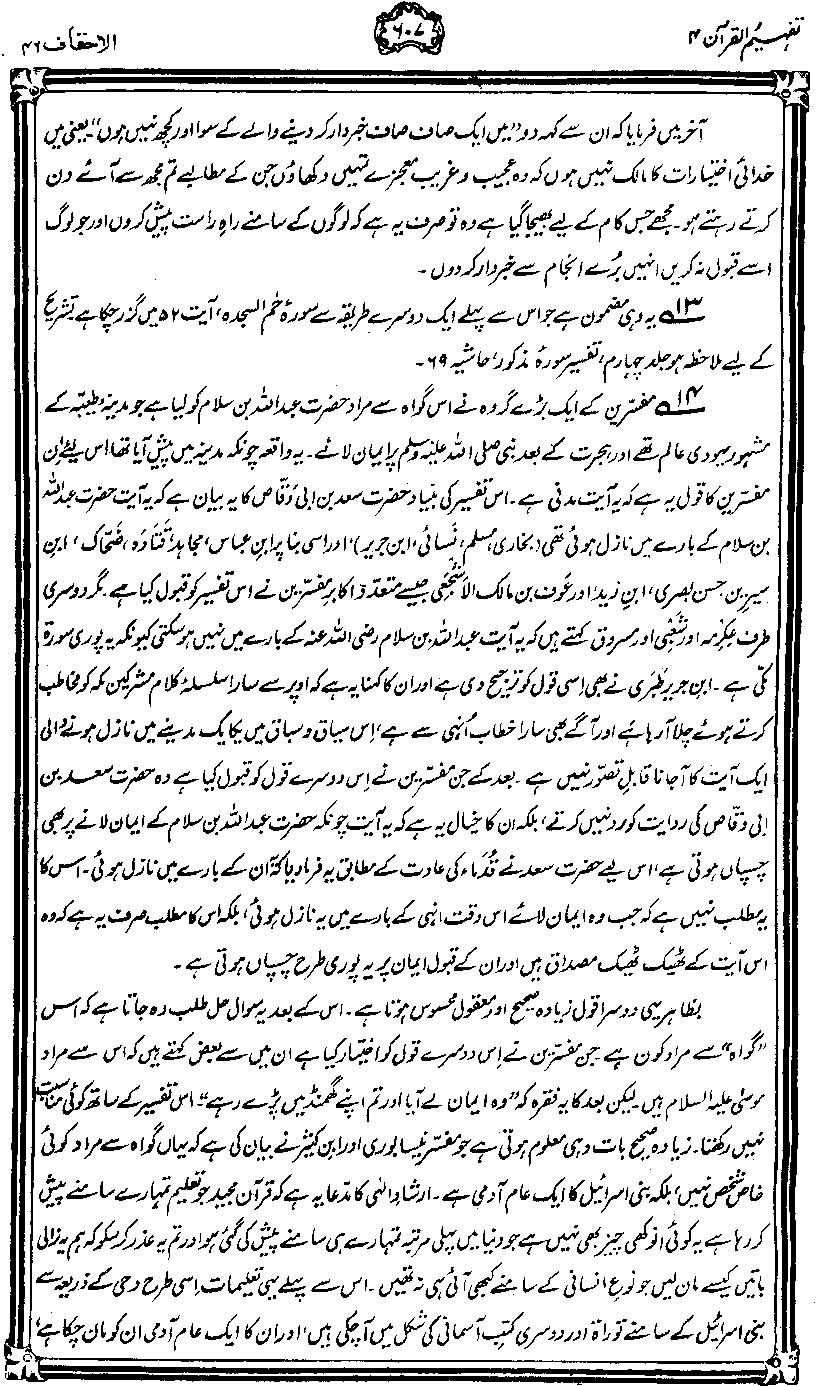 تفہیم القرآن ۴
۶۰۷
الاحقاف ۴۶
آخر میں فرمایا کہ ان سے کہہ دو ”میں ایک صاف صاف خبردار کر دینے والے کے سوا اور کچھ نہیں ہوں“ یعنی میں
خدائی اختیارات کا مالک نہیں ہوں کہ وہ عجیب و غریب معجزے تمہیں دکھاؤں جن کے مطالبے تم مجھ سے آئے دن
کرتے رہتے ہو۔ مجھے جس کام کے لیے بھیجا گیا ہے وہ تو صرف یہ ہے کہ لوگوں کے سامنے راہِ راست پیش کروں اور جو لوگ
اسے قبول نہ کریں انہیں بُرے انجام سے خبردار کر دوں۔
۱۳ یہ وہی مضمون ہے جو اس سے پہلے ایک دوسرے طریقہ سے سورۂ حٰم السجدہ، آیت ۵۲ میں گزر چکا ہے تشریح
کے لیے ملاحظہ ہو جلد چہارم، تفسیر سورۂ مذکور، حاشیہ ۶۹۔
۱۴ مفسّرین کے ایک بڑے گروہ نے اس گواہ سے مراد حضرت عبداللہ بن سلام کو لیا ہے جو مدینۂ طیّبہ کے
مشہور یہودی عالم تھے اور ہجرت کے بعد نبی صلی اللہ علیہ وسلم پر ایمان لائے۔ یہ واقعہ چونکہ مدینہ میں پیش آیا تھا اس لیے اِن
مفسّرین کا قول یہ ہے کہ یہ آیت مدنی ہے۔ اس تفسیر کی بنیاد حضرت سعد بن ابی وَقّاص کا یہ بیان ہے کہ یہ آیت حضرت عبداللہ
بن سلام کے بارے میں نازل ہوئی تھی (بخاری، مسلم، نَسائی، ابن جریر)، اور اسی بنا پر ابن عباس، مجاہد، قَتَادَہ، ضَحّاک، ابن
سیرین، حسن بصری، ابنِ زید، اور عَوف بن مالک الاَشجعی جیسے متعدّد اکابر مفسّرین نے اس تفسیر کو قبول کیا ہے۔ مگر دوسری
طرف عِکْرِمہ اور شَعْبی اور مسروق کہتے ہیں کہ یہ آیت عبداللہ بن سلام رضی اللہ عنہ کے بارے میں نہیں ہو سکتی کیونکہ یہ پوری سورۃ
مکّی ہے۔ ابن جریر طَبَری نے بھی اسی قول کو ترجیح دی ہے اور ان کا کہنا یہ ہے کہ اوپر سے سارا سلسلۂ کلام مشرکینِ مکہ کو مخاطب
کرتے ہوئے چلا آ رہا ہے اور آگے بھی سارا خطاب اُنہی سے ہے، اِس سیاق و سباق میں یکایک مدینے میں نازل ہونے والی
ایک آیت کا آ جانا قابلِ تصوّر نہیں ہے۔ بعد کے جن مفسّرین نے اِس دوسرے قول کو قبول کیا ہے وہ حضرت سعد بن
ابی وقّاص کی روایت کو رد نہیں کرتے، بلکہ ان کا خیال یہ ہے کہ یہ آیت چونکہ حضرت عبداللہ بن سلام کے ایمان لانے پر بھی
چسپاں ہوتی ہے، اس لیے حضرت سعد نے قُدَماء کی عادت کے مطابق یہ فرما دیا کہ ان کے بارے میں نازل ہوئی۔ اس کا
یہ مطلب نہیں ہے کہ جب وہ ایمان لائے اس وقت انہی کے بارے میں یہ نازل ہوئی، بلکہ اس کا مطلب صرف یہ ہے کہ وہ
اس آیت کے ٹھیک ٹھیک مصداق ہیں اور ان کے قبول ایمان پر یہ پوری طرح چسپاں ہوتی ہے۔
بظاہر یہی دوسرا قول زیادہ صحیح اور معقول محسوس ہوتا ہے۔ اس کے بعد یہ سوال حل طلب رہ جاتا ہے کہ اس
”گواہ“ سے مراد کون ہے۔ جن مفسّرین نے اِس دوسرے قول کو اختیار کیا ہے ان میں سے بعض کہتے ہیں کہ اس سے مراد
موسیٰ علیہ السلام ہیں۔ لیکن بعد کا یہ فقرہ کہ ”وہ ایمان لے آیا اور تم اپنے گھمنڈ میں پڑے رہے“ اس تفسیر کے ساتھ کوئی مناسبت
نہیں رکھتا۔ زیادہ صحیح بات وہی معلوم ہوتی ہے جو مفسّر نیسابوری اور ابن کثیر نے بیان کی ہے کہ یہاں گواہ سے مراد کوئی
خاص شخص نہیں، بلکہ بنی اسرائیل کا ایک عام آدمی ہے۔ ارشادِ الٰہی کا مدّعا یہ ہے کہ قرآن مجید جو تعلیم تمہارے سامنے پیش
کر رہا ہے یہ کوئی انوکھی چیز بھی نہیں ہے جو دنیا میں پہلی مرتبہ تمہارے ہی سامنے پیش کی گئی ہو اور تم یہ عذر کر سکو کہ ہم یہ نرالی
باتیں کیسے مان لیں جو نوعِ انسانی کے سامنے کبھی آئی ہی نہ تھیں۔ اس سے پہلے یہی تعلیمات اسی طرح وحی کے ذریعہ سے
بنی اسرائیل کے سامنے توراۃ اور دوسری کتبِ آسمانی کی شکل میں آ چکی ہیں، اور ان کا ایک عام آدمی ان کو مان چکا ہے،